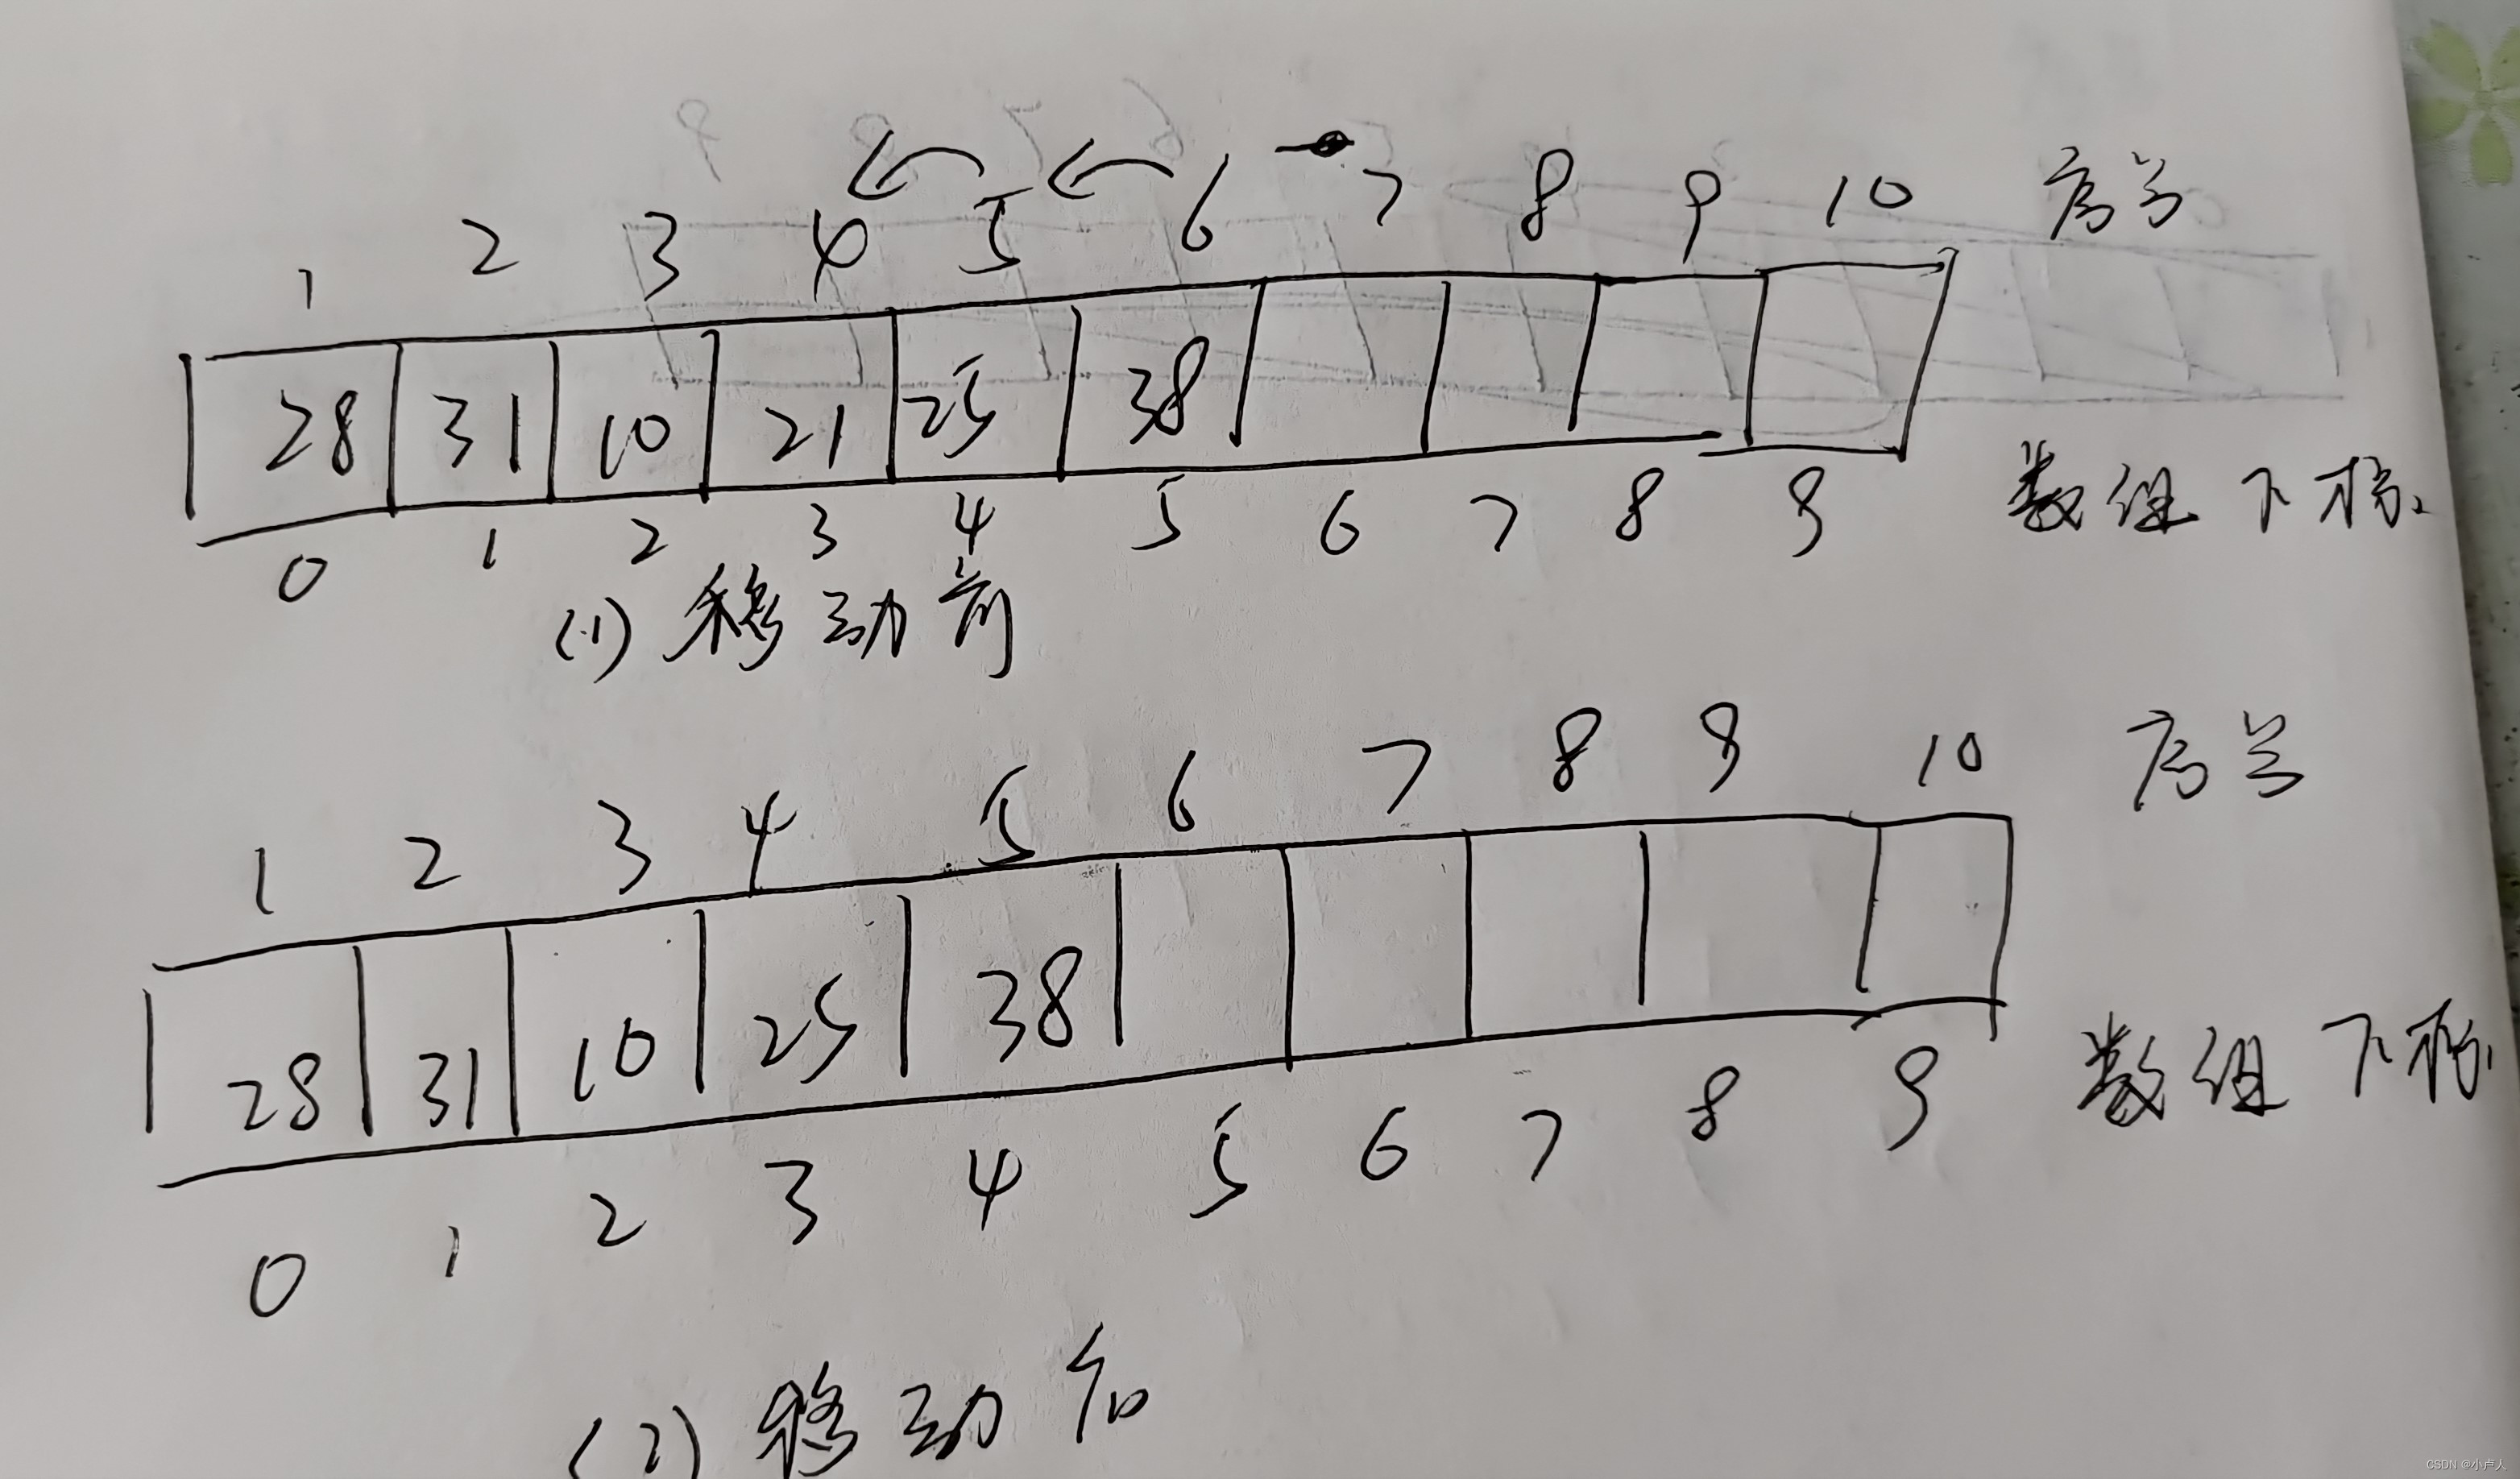 1 2 3 4 5 6 7 8 9 10 序号
28 31 10 21 25 38
0 1 2 3 4 5 6 7 8 9 数组下标
(1) 移动前
1 2 3 4 5 6 7 8 9 10 序号
28 31 10 25 38
0 1 2 3 4 5 6 7 8 9 数组下标
(2) 移动后
CSDN @小卢人